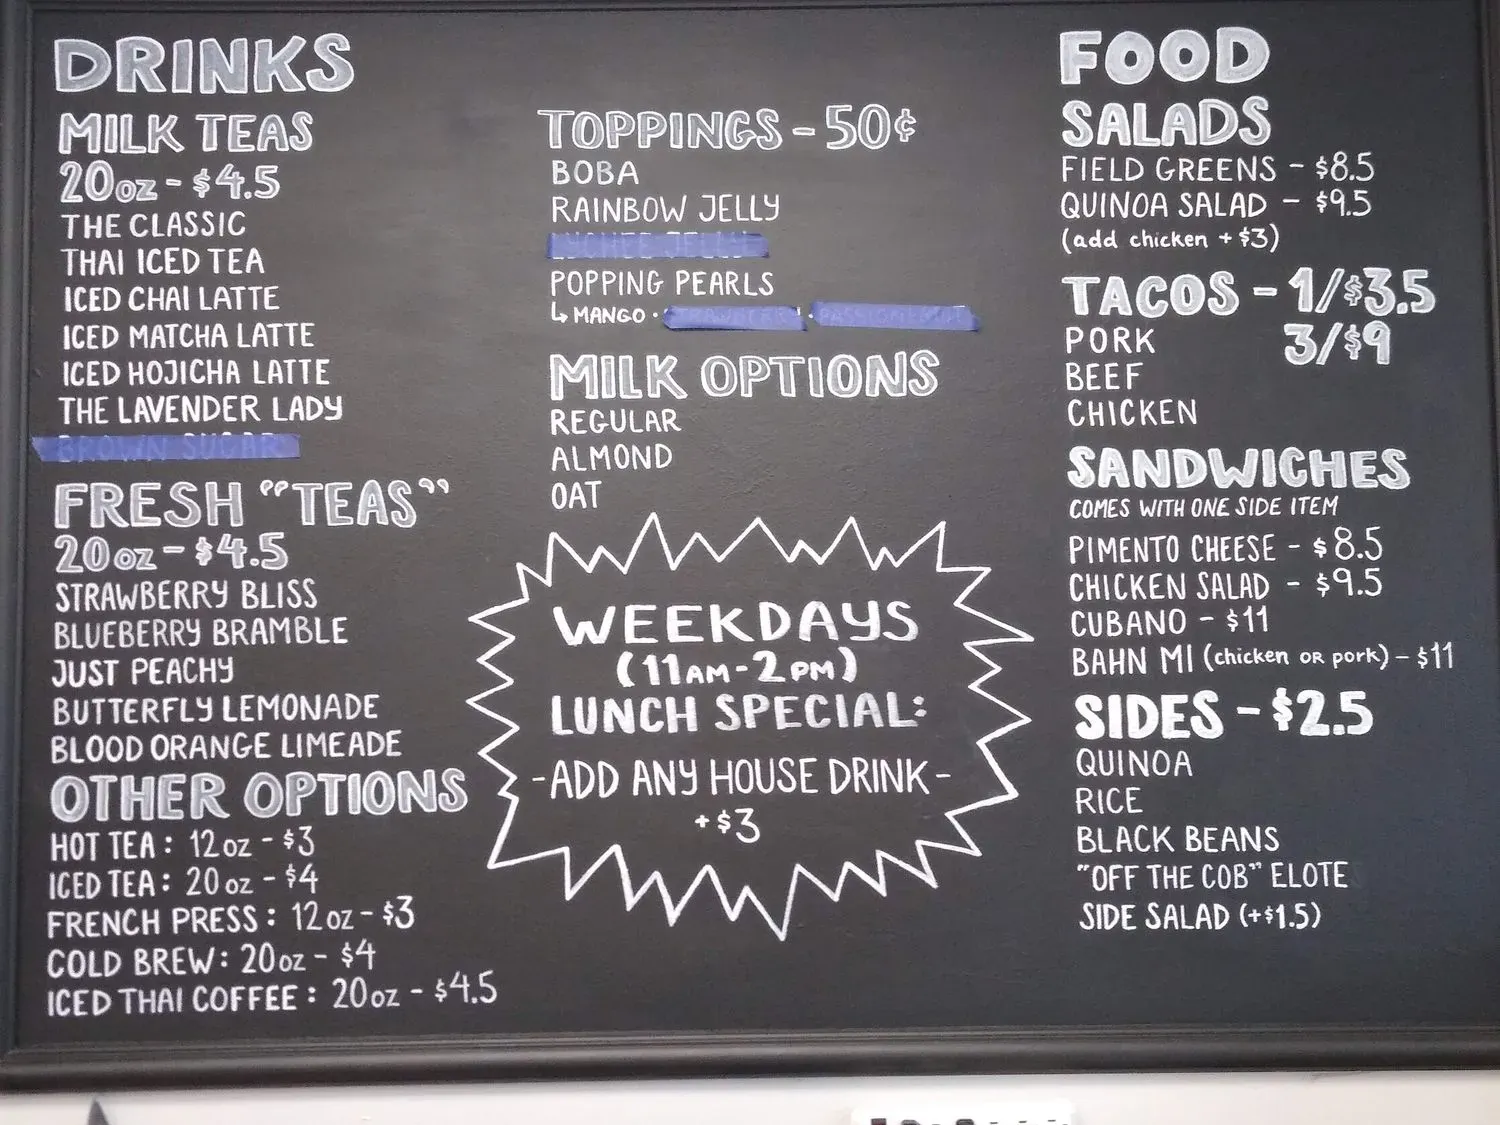 DRINKS
MILK TEAS
20oz - $4.5
THE CLASSIC
THAI ICED TEA
ICED CHAI LATTE
ICED MATCHA LATTE
ICED HOJICHA LATTE
THE LAVENDER LADY
BROWN SUGAR
FRESH "TEAS"
20oz - $4.5
STRAWBERRY BLISS
BLUEBERRY BRAMBLE
JUST PEACHY
BUTTERFLY LEMONADE
BLOOD ORANGE LIMEADE
OTHER OPTIONS
HOT TEA: 12oz - $3
ICED TEA: 20oz - $4
FRENCH PRESS: 12oz - $3
COLD BREW: 20oz - $4
ICED THAI COFFEE: 20oz - $4.5
TOPPINGS - 50¢
BOBA
RAINBOW JELLY
POPPING PEARLS
↳ MANGO ·
MILK OPTIONS
REGULAR
ALMOND
OAT
WEEKDAYS
(11AM-2PM)
LUNCH SPECIAL:
-ADD ANY HOUSE DRINK-
+$3
FOOD
SALADS
FIELD GREENS - $8.5
QUINOA SALAD - $9.5
(add chicken + $3)
TACOS - 1/$3.5
3/$9
PORK
BEEF
CHICKEN
SANDWICHES
COMES WITH ONE SIDE ITEM
PIMENTO CHEESE - $8.5
CHICKEN SALAD - $9.5
CUBANO - $11
BAHN MI (chicken OR pork) - $11
SIDES - $2.5
QUINOA
RICE
BLACK BEANS
"OFF THE COB" ELOTE
SIDE SALAD (+$1.5)